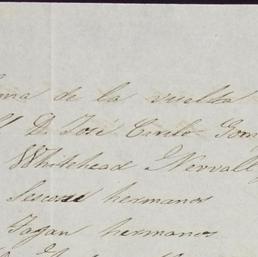 de la vuelta
D. José Cirilo Gom
Whitehead Nervall
hermanos
Fagan hermanos